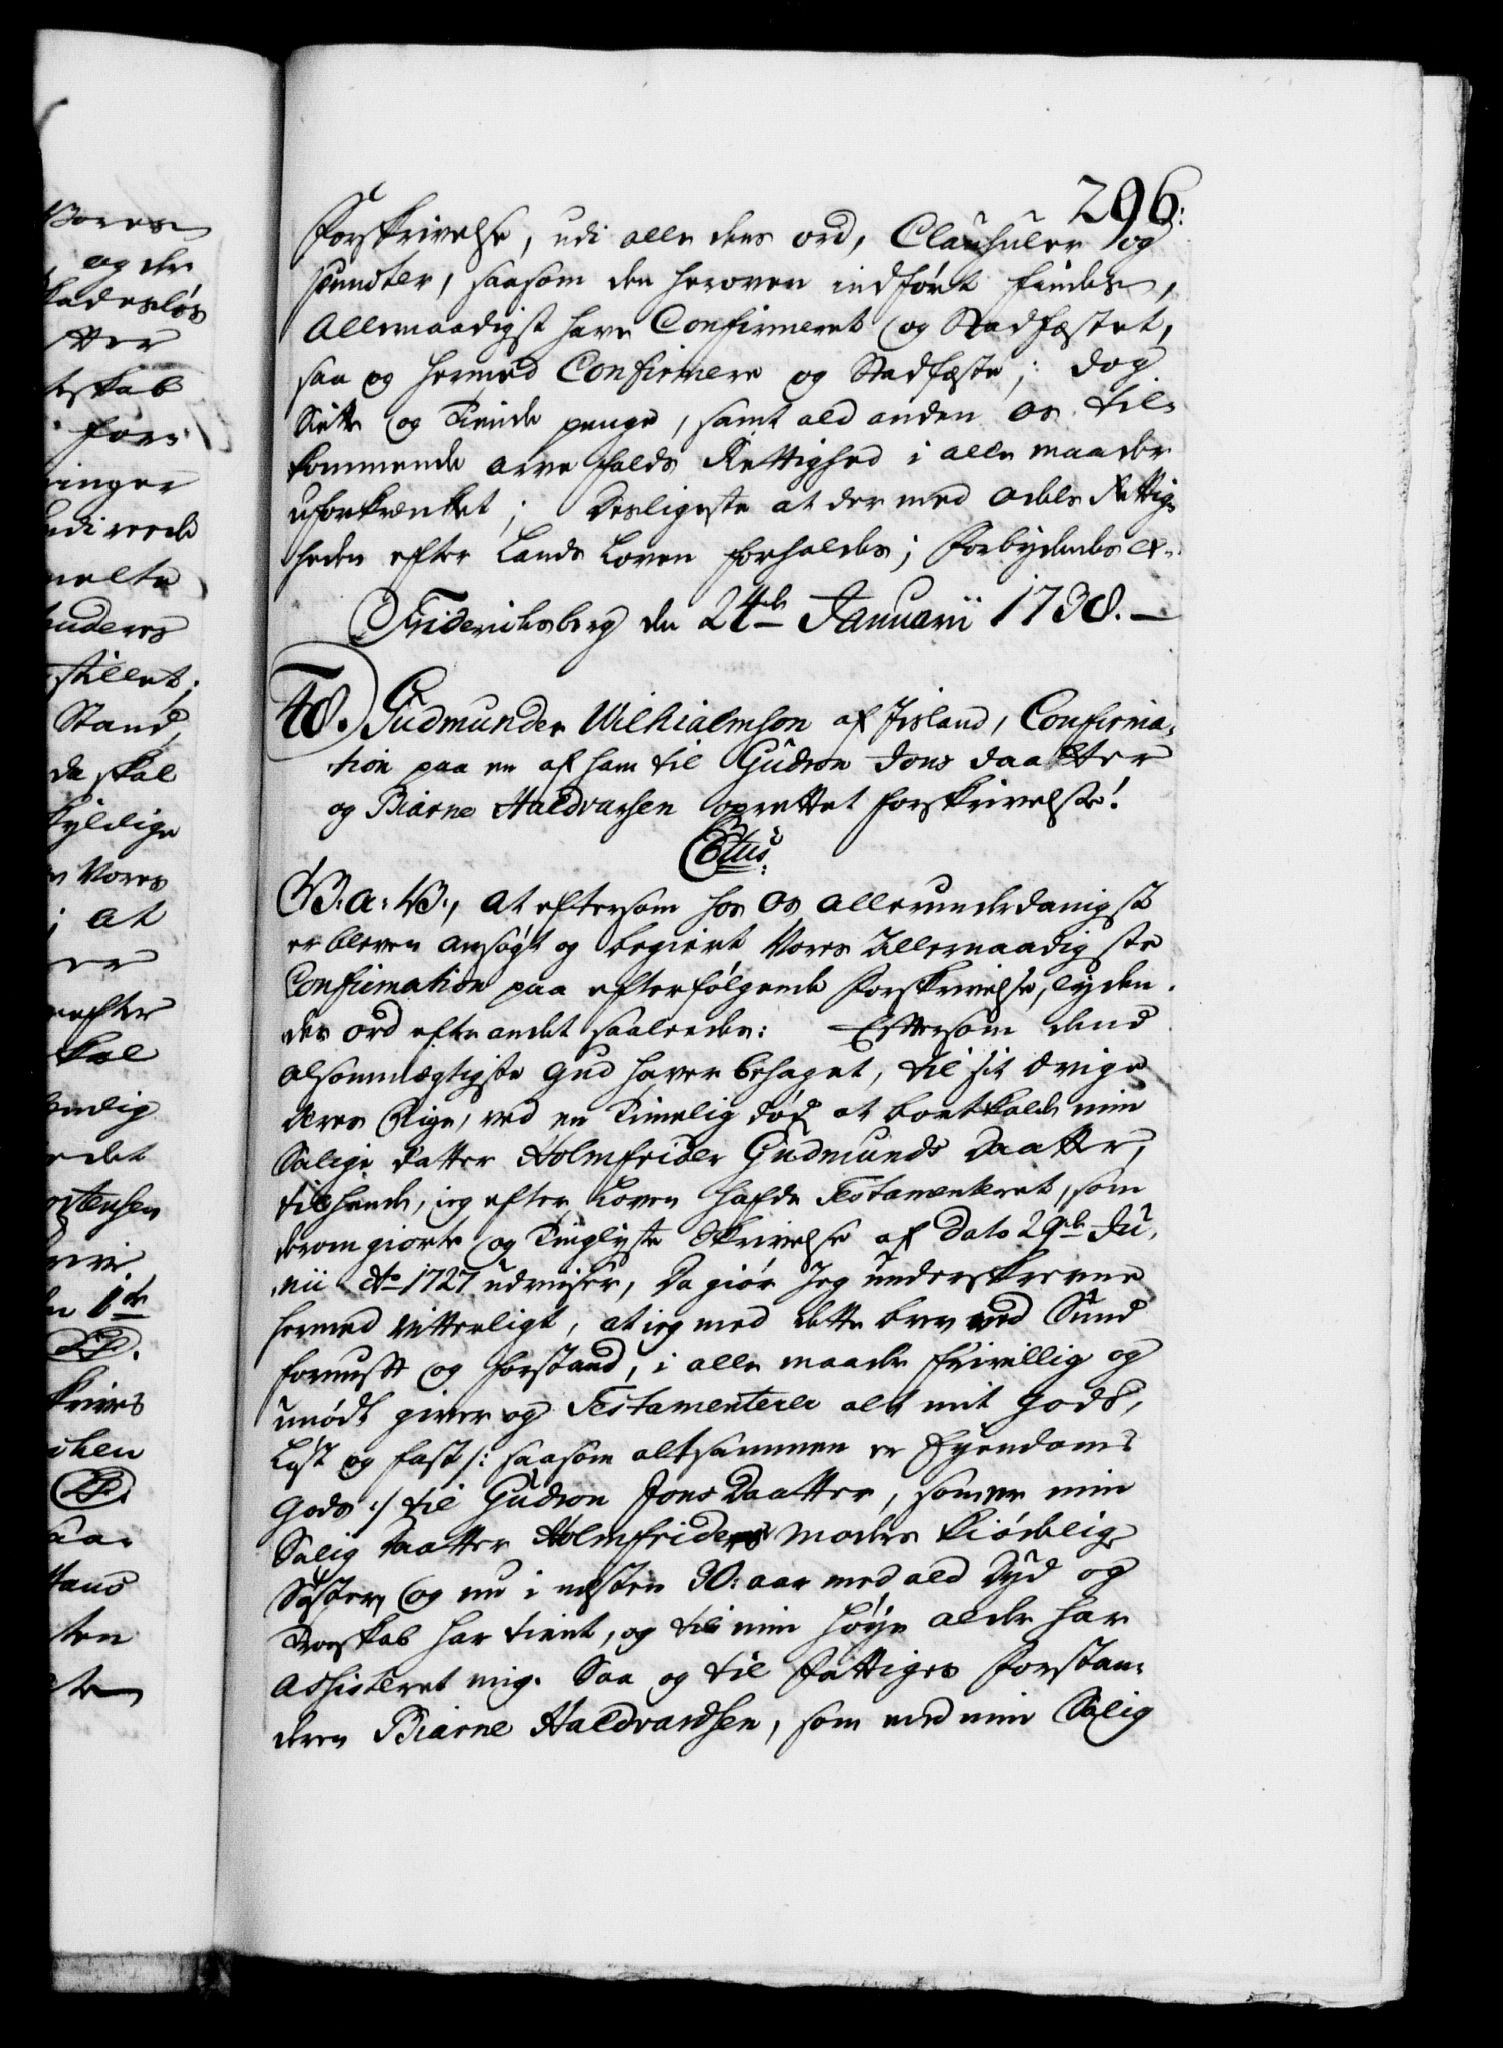 296.
Forskrivelse, udi alle dens ord, Clausuler og
puncter, saasom den heroven indført findes,
Allernaadigst have Confirmeret og Stadfæstet,
saa og hermed Confirmere og Stadfæste; dog
Siette og Tiende penge, samt ald anden os til-
kommende arve falds Rettighed i alle maader
uforkrænket; Desligeste at der med odels Rettig-
heden efter Lands Loven forholdes; Forbydendes &c.
Friderichsberg den 24de Januarii 1738.
48. Gudmunder Wilhialmson af Jisland, Confirma-
tion paa en af ham til Gudron Jons daatter
og Biarne Haldvarsen oprettet forskrivelse.
C6tus.
W.a:W., at eftersom hos os allerunderdanigst
er bleven ansøgt og begiert Vores Allernaadigste
Confirmation paa efterfølgende Forskrivelse, lyden-
des ord efter andet saaledes: Eftersom dend
alsommægtigste Gud haver behaget, til sit ævige
æres Rige, ved en Timelig død at bortkalde min
Salige datter Holmfrider Gudmunds Daatter,
til hende, ieg efter Loven hafde Testamenteret, som
derom giorte og Tinglyste Skrivelse af dato 29de Ju-
nii Ao 1727 udviser, Da giør Jeg underskrevne
hermed vitterligt, at ieg med dette brev ved Sund
fornuft og forstand, i alle maader frivillig og
unødt giver og Testamenterer alt mit gods,
Løst og fast /: saasom altsammen er Eyendoms
gods :/ til Gudron Jons Daatter, som er min
Salig daatter Holmfriders Moders kiødelig
Søster, og nu i næsten 30: aar med ald dyd og
Troeskab har tient, og til min høye alder har
assisteret mig. Saa og til Fattiges Forstan-
deren Biarne Haldvardsen, som med min Salig